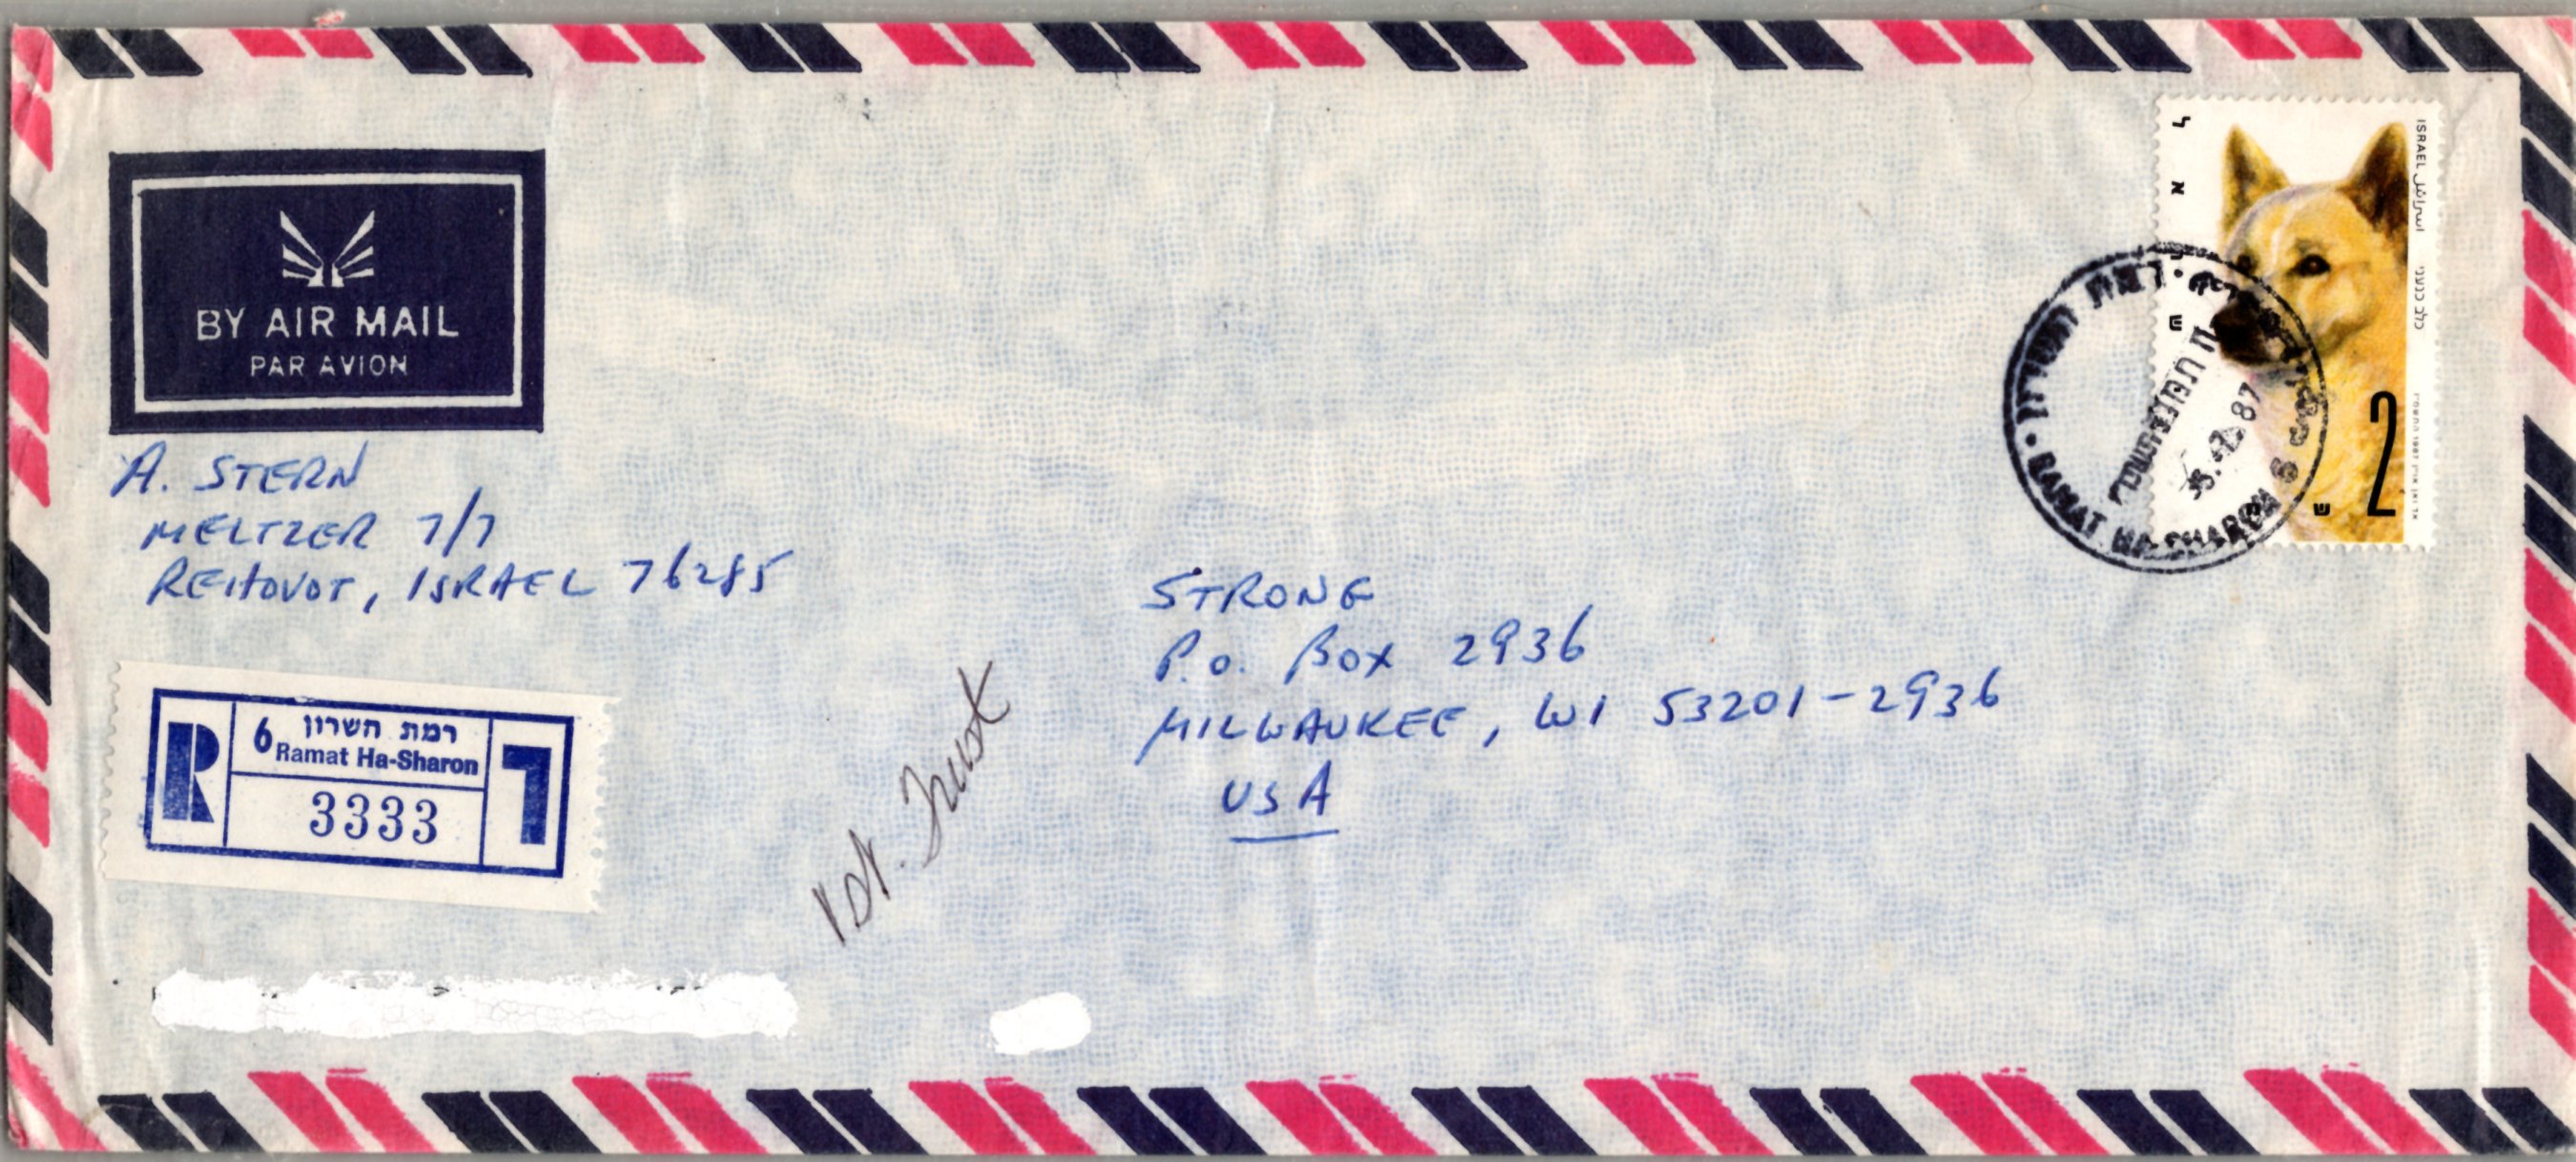 BY AIR MAIL
PAR AVION
A. STERN
MELTZER 7/7
REHOVOT, ISRAEL 76285
R
6 רמת השרון
Ramat Ha-Sharon
3333
ר
1st. Trust
STRONG
P.O. BOX 2936
MILWAUKEE, WI 53201-2936
USA
ISRAEL اسرائيل כלב כנעני
2
רמת השרון
87
RAMAT HA-SHARON 6